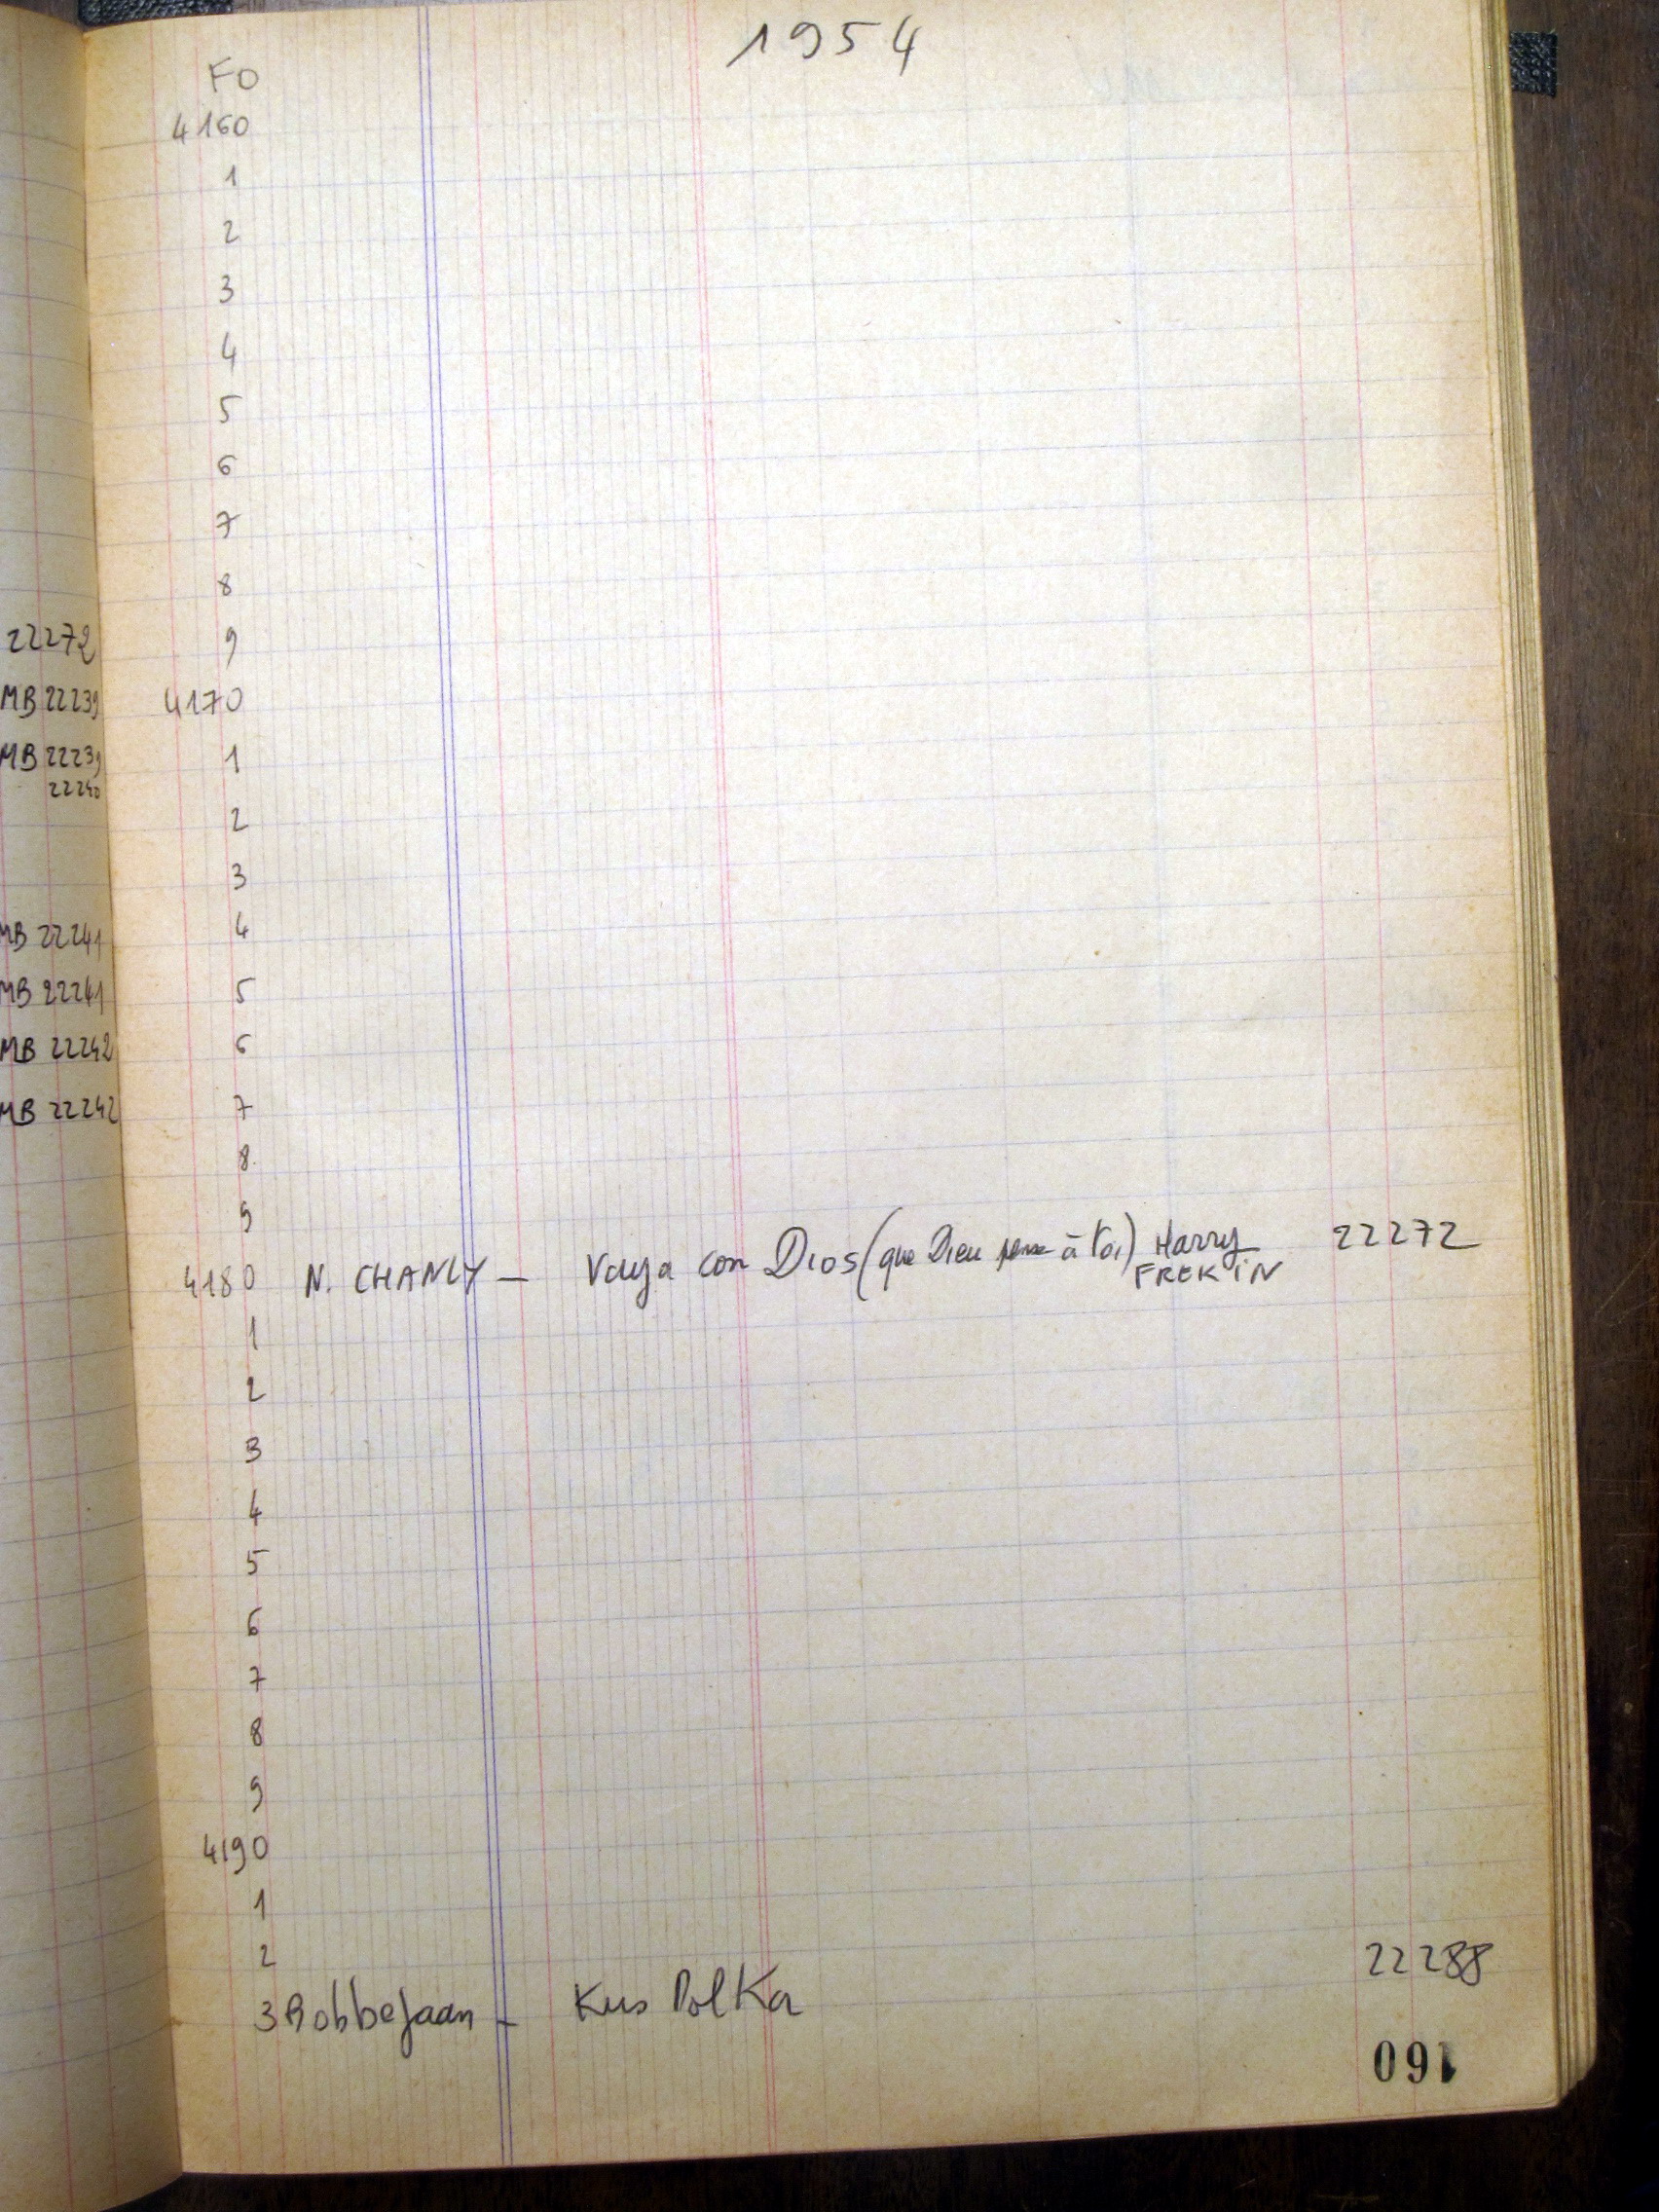 1954
FO
4160
1
2
3
4
5
6
7
8
9
4170
1
2
3
4
5
6
7
8
9
4180 N. CHANLY - Vaya con Dios (que Dieu pense à toi) Harry FREKIN 22272
1
2
3
4
5
6
7
8
9
4190
1
2
3 Bobbejaan - Kus Polka 22288
160
22272
MB 22239
MB 22239
22240
MB 22241
MB 22241
MB 22242
MB 22242